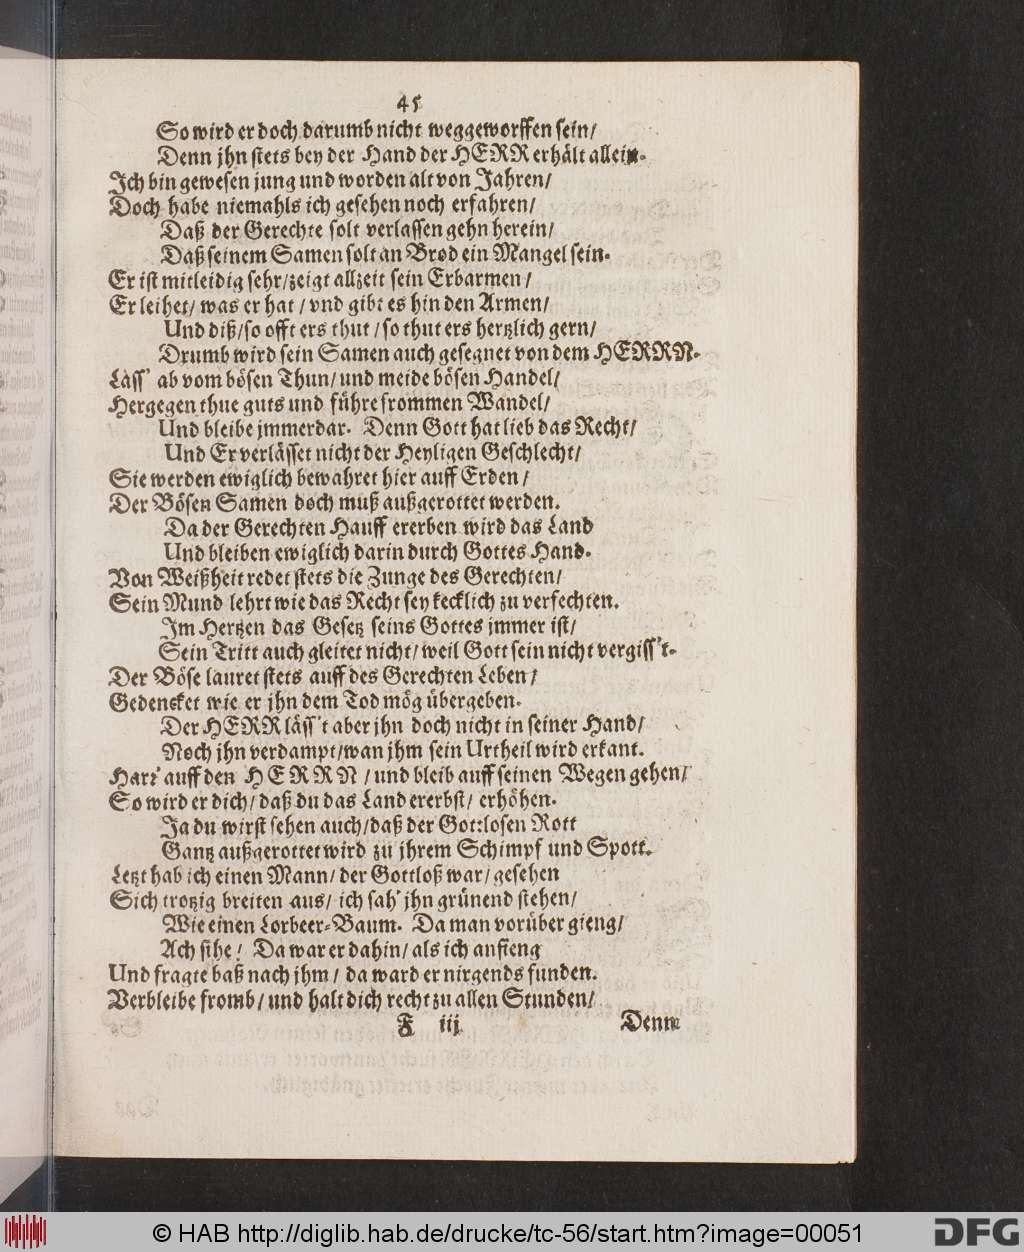 45
So wird er doch darumb nicht weggeworffen sein/
Denn jhn stets bey der Hand der HERR erhält allein.
Ich bin gewesen jung und worden alt von Jahren/
Doch habe niemahls ich gesehen noch erfahren/
Daß der Gerechte solt verlassen gehn herein/
Daß seinem Samen solt an Brod ein Mangel sein.
Er ist mitleidig sehr/zeigt allzeit sein Erbarmen/
Er leihet/ was er hat / vnd gibt es hin den Armen/
Und diß/so offt ers thut / so thut ers hertzlich gern/
Drumb wird sein Samen auch gesegnet von dem HERRN.
Läss' ab vom bösen Thun/ und meide bösen Handel/
Hergegen thue guts und führe frommen Wandel/
Und bleibe jmmerdar. Denn Gott hat lieb das Recht/
Und Er verlässet nicht der Heyligen Geschlecht/
Sie werden ewiglich bewahret hier auff Erden/
Der Bösen Samen doch muß außgerottet werden.
Da der Gerechten Hauff ererben wird das Land
Und bleiben ewiglich darin durch Gottes Hand.
Von Weißheit redet stets die Zunge des Gerechten/
Sein Mund lehrt wie das Recht sey kecklich zu verfechten.
Im Hertzen das Gesetz seins Gottes jmmer ist/
Sein Tritt auch gleitet nicht/ weil Gott sein nicht vergiss't.
Der Böse lauret stets auff des Gerechten Leben/
Gedencket wie er jhn dem Tod mög übergeben.
Der HERR läss't aber jhn doch nicht in seiner Hand/
Noch jhn verdampt/wan jhm sein Urtheil wird erkant.
Harr' auff den HERRN / und bleib auff seinen Wegen gehen/
So wird er dich/ daß du das Land ererbst/ erhöhen.
Ja du wirst sehen auch/daß der Gottlosen Rott
Gantz außgerottet wird zu jhrem Schimpf und Spott.
Letzt hab ich einen Mann/ der Gottloß war/ gesehen
Sich trotzig breiten aus/ ich sah' jhn grünend stehen/
Wie einen Lorbeer-Baum. Da man vorüber gieng/
Ach sihe! Da war er dahin/ als ich anfieng
Und fragte baß nach jhm/ da ward er nirgends funden.
Verbleibe fromb/ und halt dich recht zu allen Stunden/
F iij Denn
© HAB http://diglib.hab.de/drucke/tc-56/start.htm?image=00051
DFG